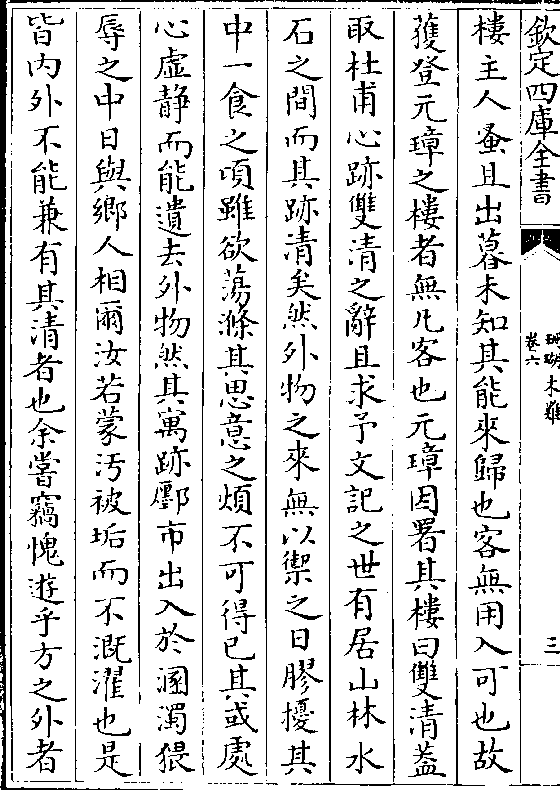 欽定四庫全書
珊瑚木難
卷六
三
樓主人蚤且出暮未知其能來歸也客無用入可也故
獲登元璋之樓者無凡客也元璋因署其樓曰雙清葢
取杜甫心跡雙清之辭且求予文記之世有居山林水
石之間而其跡清矣然外物之來無以禦之日膠擾其
中一食之頃雖欲蕩滌其思意之煩不可得已其或處
心虛静而能遺去外物然其寓跡鄽市出入於溷濁猥
辱之中日與鄉人相爾汝若蒙汚被垢而不溉濯也是
皆内外不能兼有其清者也余嘗竊愧遊乎方之外者